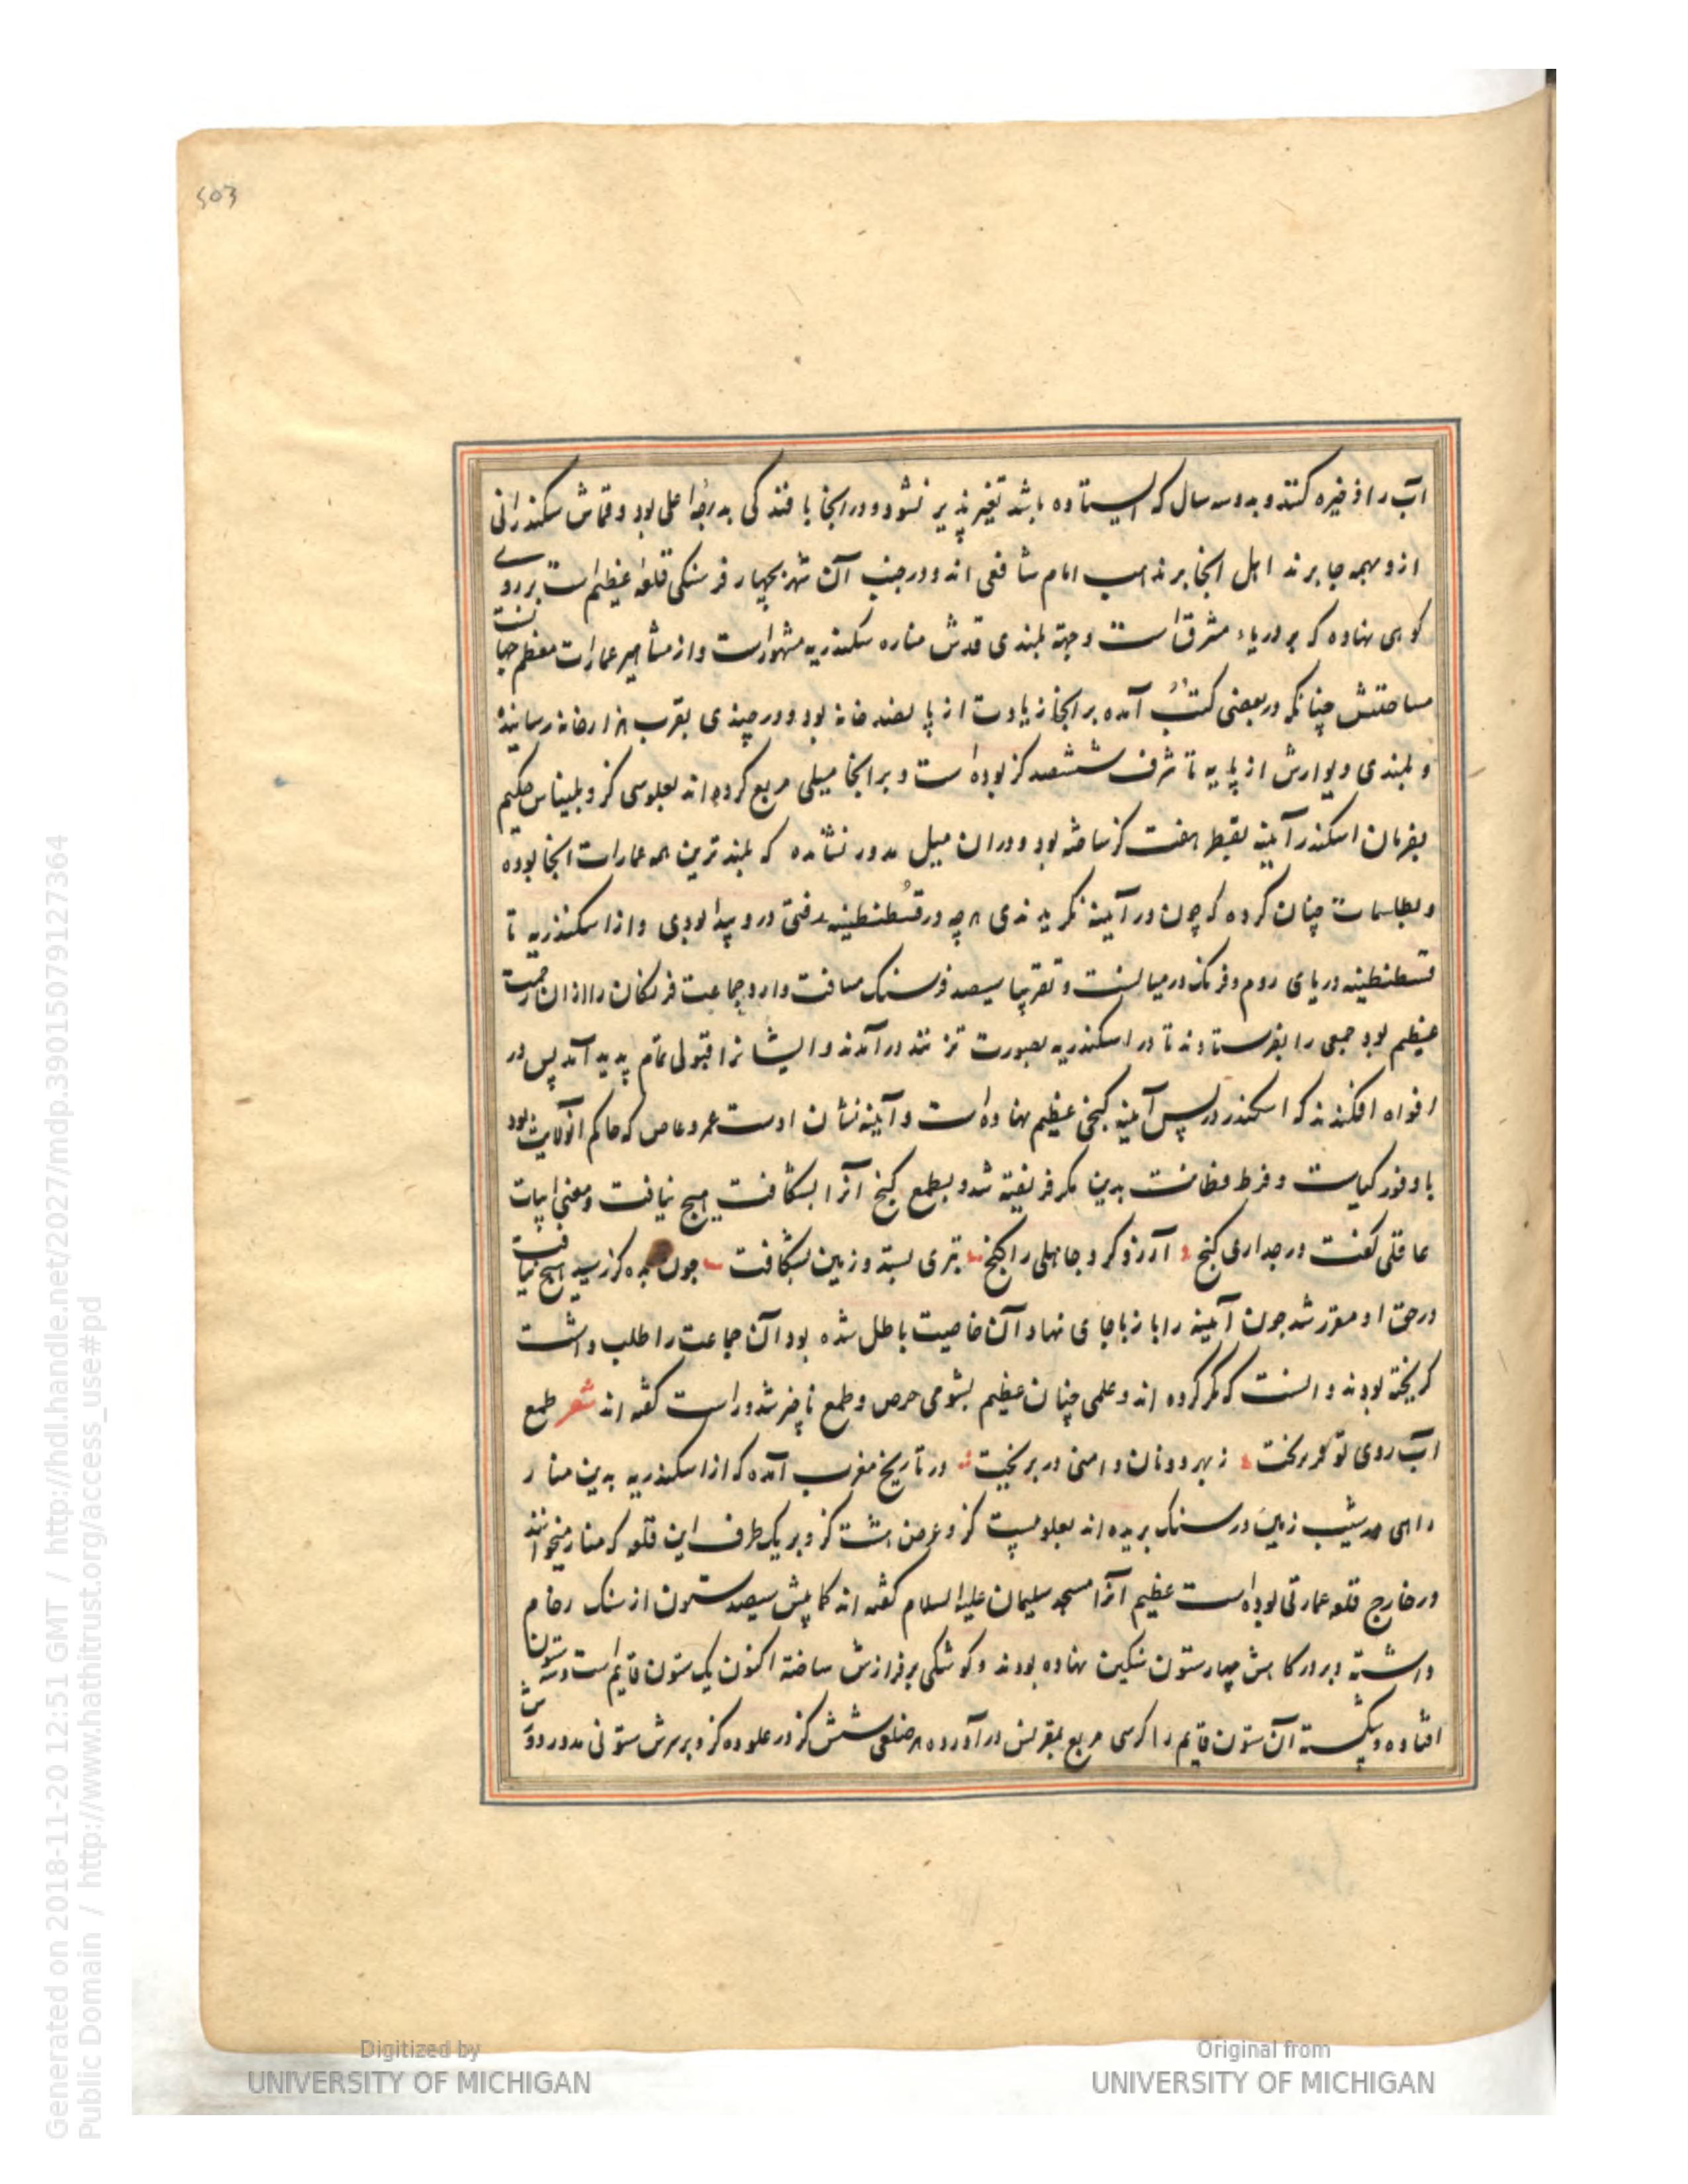 503
آب را ذخیره کنند و بدو سه سال که ایستاده باشد تغیر پذیر نشود و در انجا بافندکی بدرجه اعلی بود و قماش سکندرانی
ازو بهمه جا برند اهل انجا بر مذهب امام شافعی اند و در جنب آن شهر بچهار فرسنکی قلعه عظیم است بر روی
کوهی نهاده که بر دریاء مشرق است وجهة بلندی قدش مناره سکندریه مشهور است و از مشاهیر عمارات معظم جهانست
مساحتش چنانکه در بعضی کتب آمده بر انجا زیادت از پانصد خانه بود و در چندی بقرب هزار خانه رسانیده
و بلندی دیوارش از پایه تا شرف ششصد کز بوده است و بر انجا میلی مربع کرده اند بعلو سی کز و بلیناس حکیم
بفرمان اسکندر آیینه بقطر هفت کز ساخته بود و در ان میل مدور نشانده که بلندترین همه عمارات انجا بوده
و بطلسمات چنان کرده که چون در آیینه نکریدندی هرچه در قسطنطینه رفتی درو پیدا بودی و از اسکندریه تا
قسطنطینه دریای روم و فرنک در میانست و تقریبا سیصد فرسنک مسافت دارد جماعت فرنکان را از ان زحمت
عظیم بود جمعی را بفرستادند تا در اسکندریه بصورت درآمدند و ایشانرا قبولی تمام پدید آمد پس در
افواه افکندند که اسکندر در پس آیینه کنجی عظیم نهاده است و آیینه نشان اوست عمرو عاص که حاکم آنولایت بود
با وفور کیاست و فرط فطانت بدین مکر فریفته شد و بطمع کنج آنرا بشکافت هیچ نیافت و معنی ابیات
عاقلی کفت در جداری کنج آرزو کرد جاهلی را کنج تبری بستد و زمین بشکافت جون بده کز رسید هیچ نیافت
در حق او مقرر شد جون آیینه را باز با جای نهاد آن خاصیت باطل شده بود آن جماعت را طلب داشت
کریخته بودند دانست که مکر کرده اند و علمی چنان عظیم بشومی حرص و طمع ناچیز شد و راست کفته اند شعر طمع
آب روی توقر بریخت ز بهر دو نان دامنی در بریخت در تاریخ مغرب آمده که از اسکندریه بدین منار
راهی در شیب زمین در سنک بریده اند بعلو بیست کز و عرض هشت کز و بر یک طرف این قلعه که منار میخوانند
در خارج قلعه عمارتی بوده است عظیم آنرا مسجد سلیمان علیه السلام کفته اند کمابیش سیصد ستون از سنک رخام
داشته و بر درکاهش چهار ستون سنکین نهاده بودند و کوشکی بر فرازش ساخته اکنون یک ستون قایم است و سه ستون
افتاده و شکسته آن ستون قایم را کرسی مربع بمقرنس در آورده هر ضلعی شش کز در علو ده کز و بر سرش ستونی مدور دورش
Generated on 2018-11-20 12:51 GMT / http://hdl.handle.net/2027/mdp.39015079127364
Public Domain / http://www.hathitrust.org/access_use#pd
Digitized by
UNIVERSITY OF MICHIGAN
Original from
UNIVERSITY OF MICHIGAN